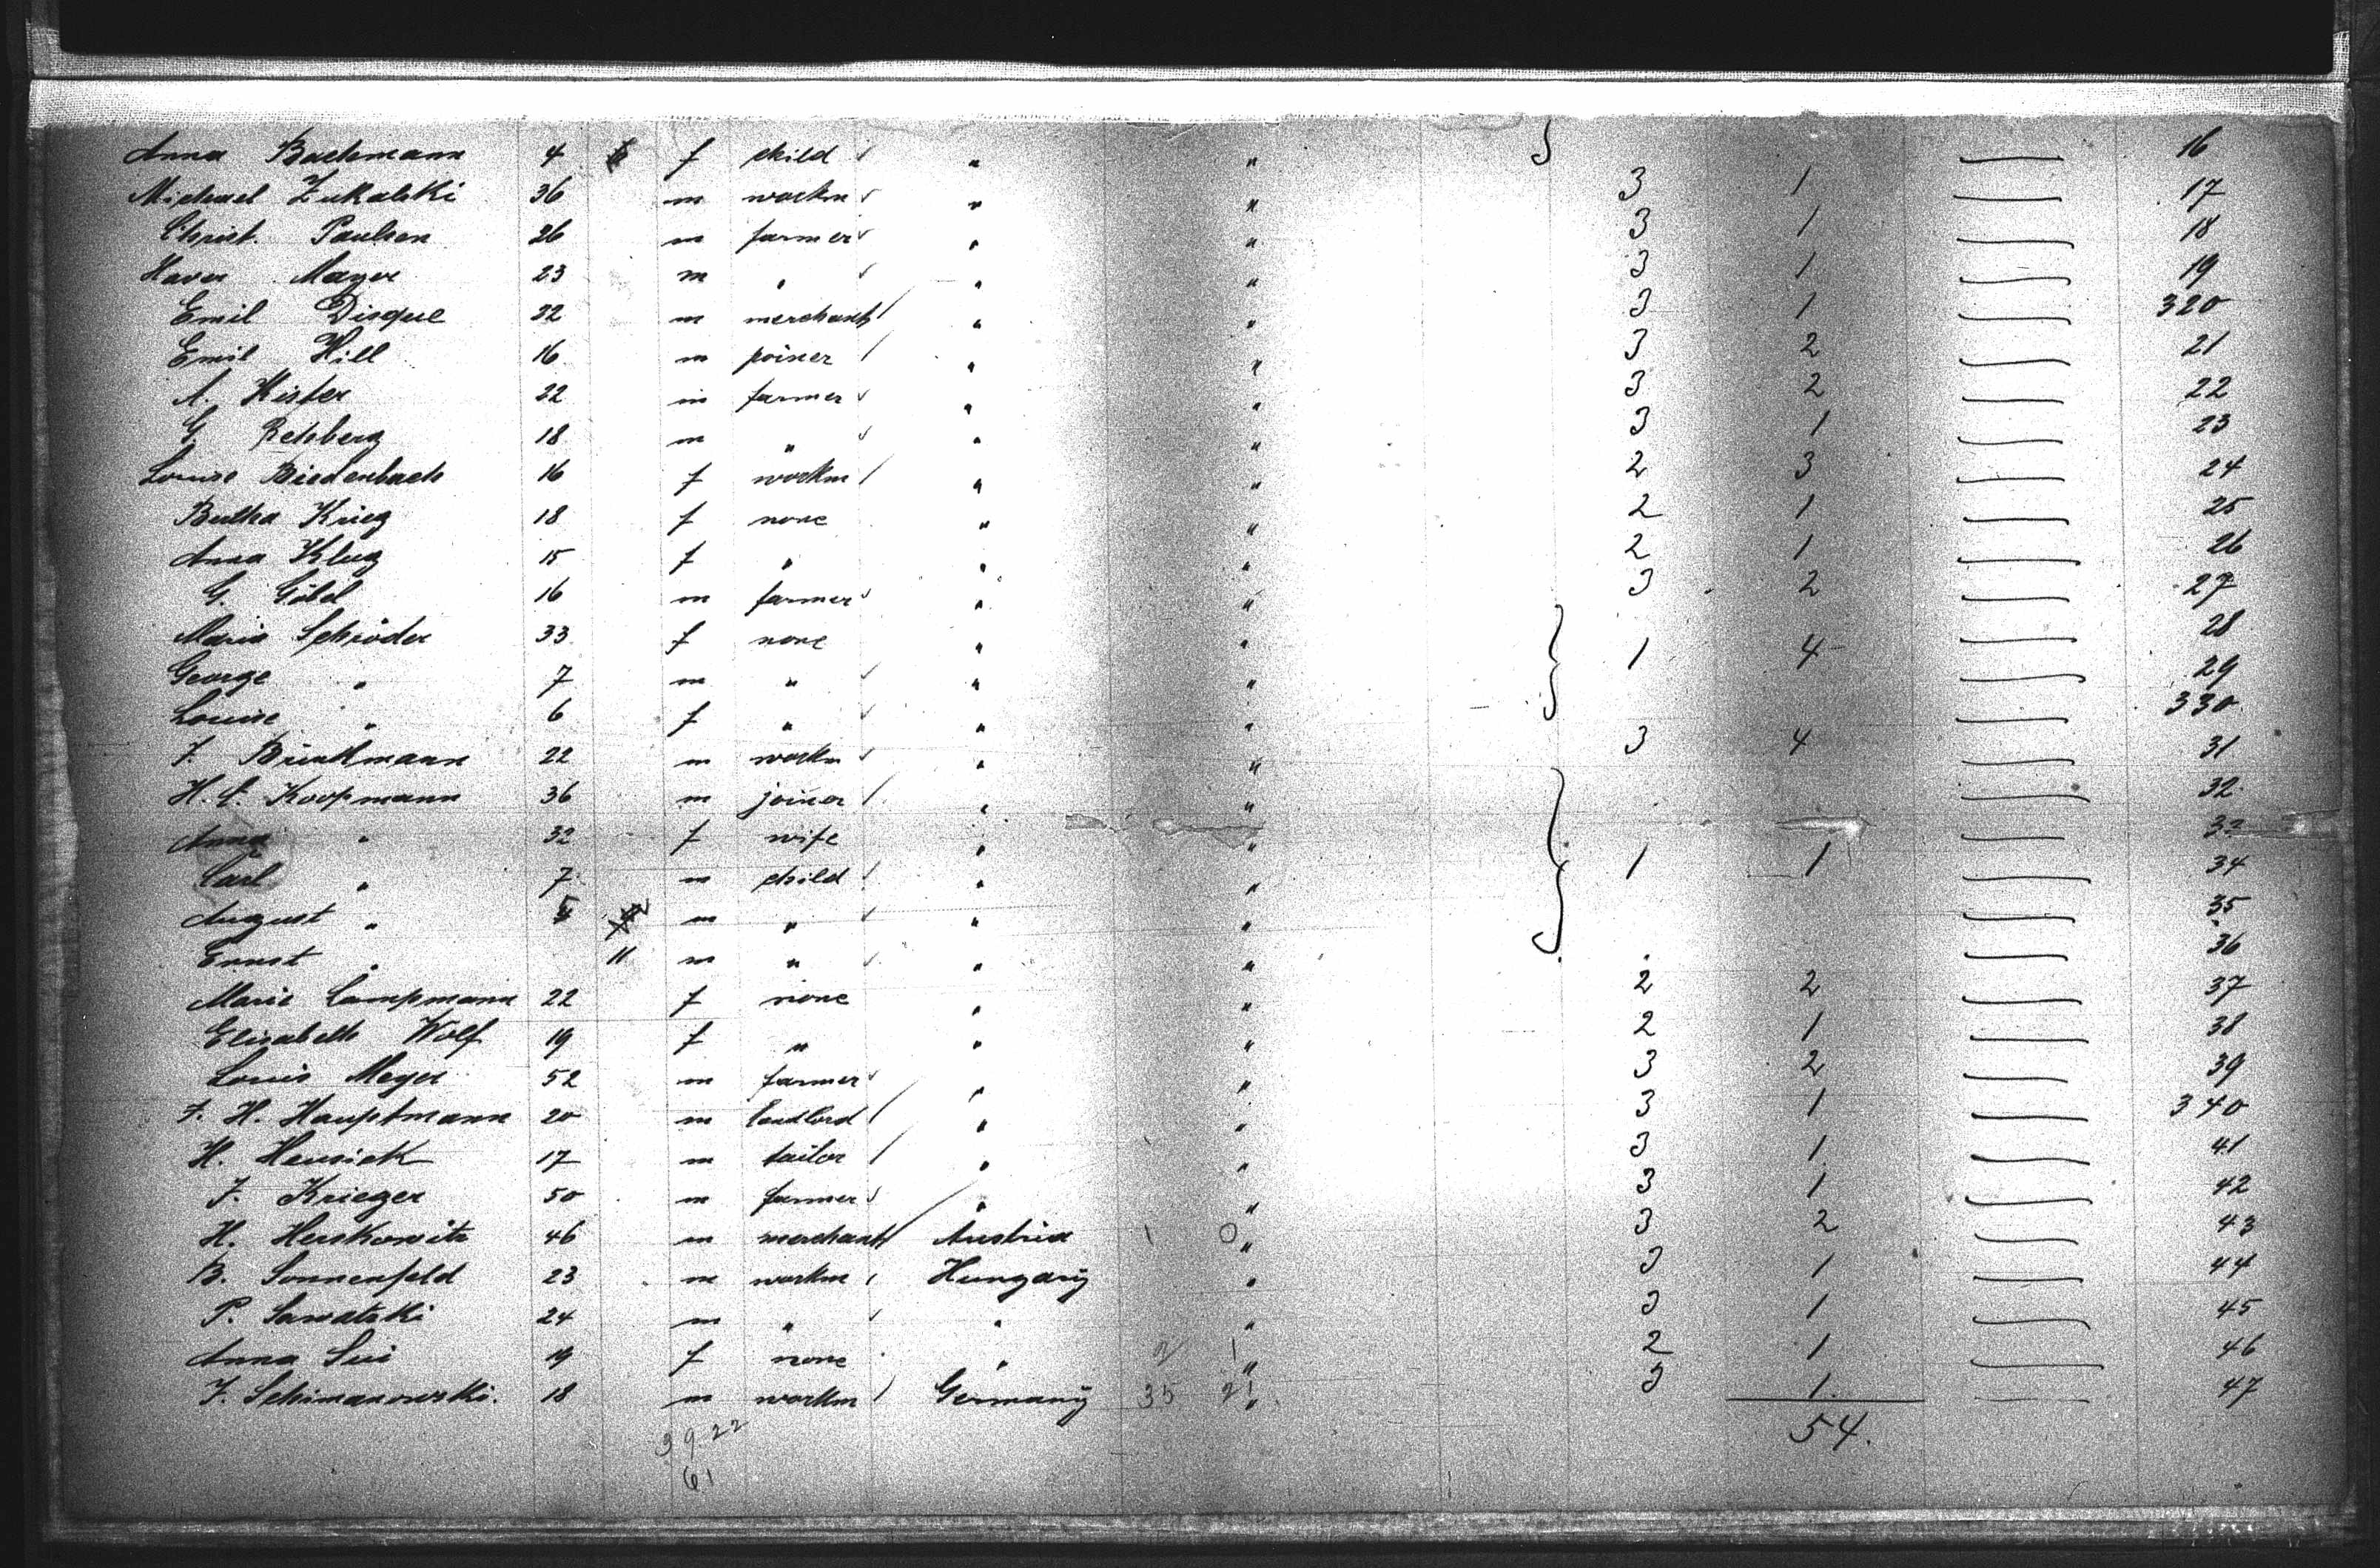 Anna Bachmann 4 f child " " 16
Michael Zukalski 36 m workm " " 3 1 17
Christ. Paulsen 26 m farmer " " 3 1 18
Xaver Mayer 23 m " " " 3 1 19
Emil Disque 22 m merchant " " 3 1 320
Emil Hill 16 m joiner " " 3 2 21
A. Kister 22 m farmer " " 3 2 22
G. Rehberg 18 m " " " 3 1 23
Louise Biedenbach 16 f workm " " 2 3 24
Bertha Krieg 18 f none " " 2 1 25
Anna Klug 15 f " " " 2 1 26
G. Göbel 16 m farmer " " 3 2 27
Maria Schröder 33 f none " " 1 4 28
George " 7 m " " " 29
Louise " 6 f " " " 330
F. Brinkmann 22 m workm " " 3 4 31
H. C. Koopmann 36 m joiner " " 32
Anna " 32 f wife " " 33
Carl " 7 m child " " 1 1 34
August " m " " " 35
Ernst " 11 m " " " 36
Marie Campmann 22 f none " " 2 2 37
Elisabeth Wolf 19 f " " " 2 1 38
Louis Meyer 52 m farmer " " 3 2 39
F. H. Hauptmann 20 m landlord " " 3 1 340
H. Hensick 17 m tailor " " 3 1 41
F. Krieger 50 m farmer " " 3 1 42
H. Herskowitz 46 m merchant Austria 1 0 " 3 2 43
B. Sonnenfeld 23 m workm Hungary " 3 1 44
P. Sawatzki 24 m " " " 3 1 45
Anna 19 f none " 2 1 " 2 1 46
F. Schimanowski. 18 m workm Germany 35 21 " 3 1. 47
39.22 54.
61